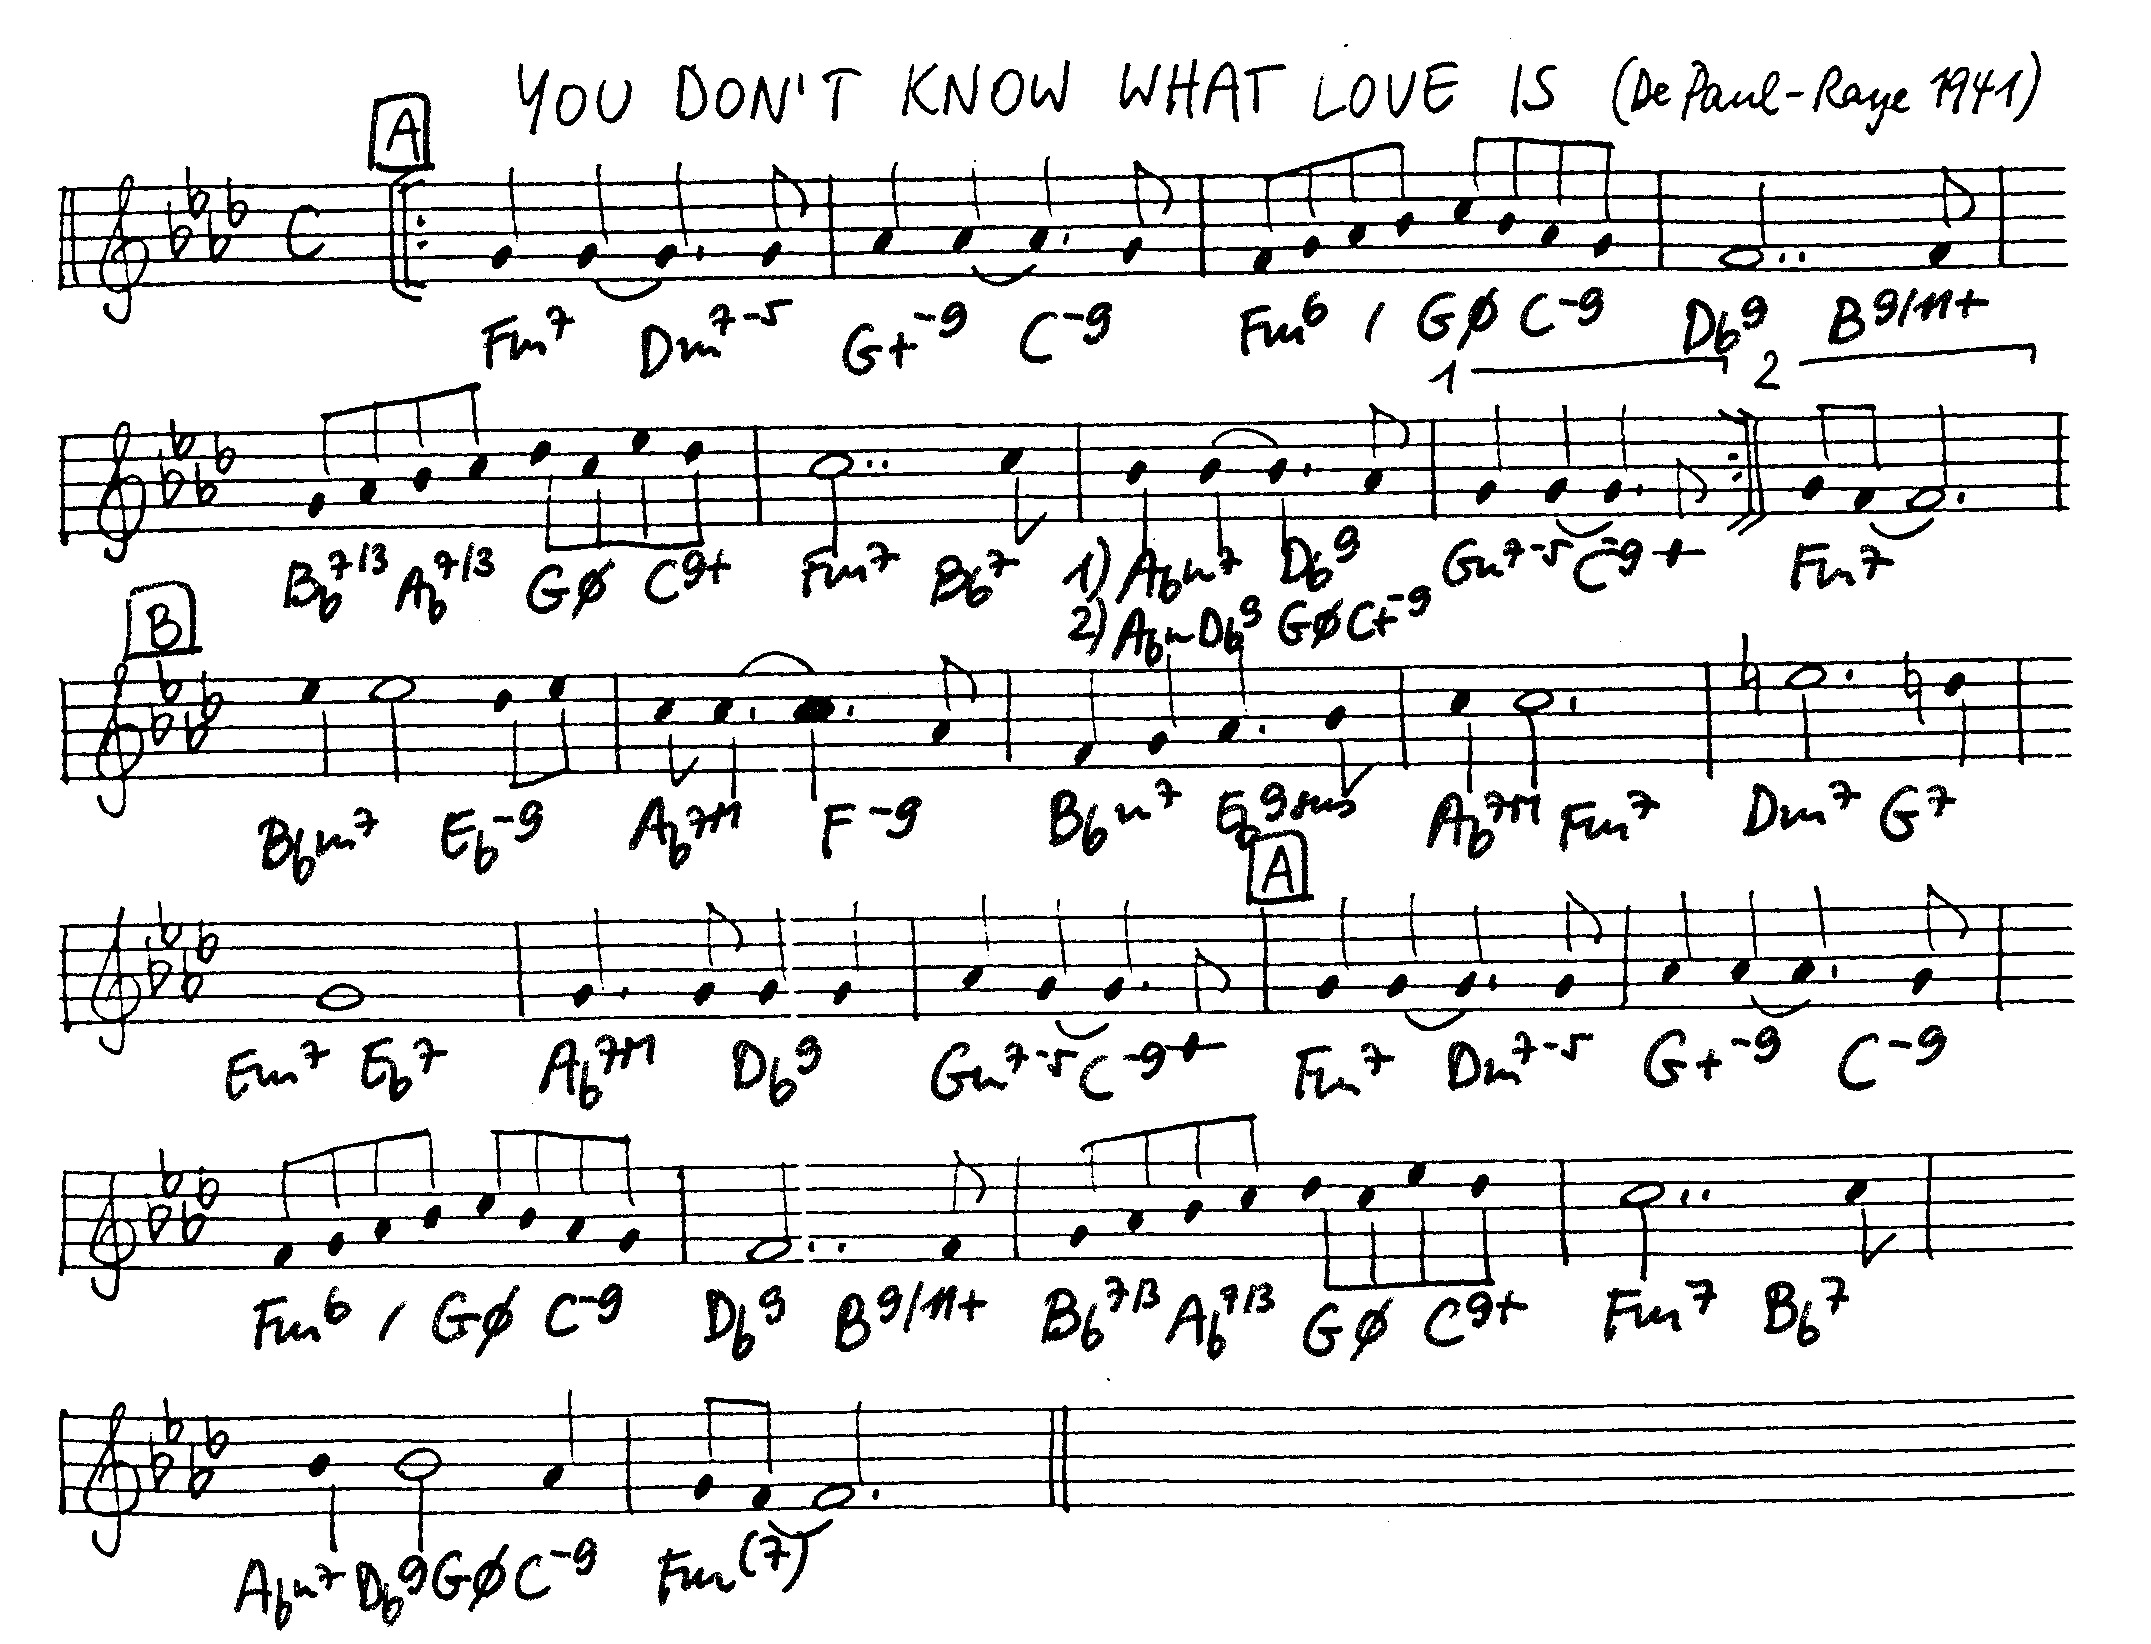 YOU DON'T KNOW WHAT LOVE IS (De Paul-Raye 1941)
A
Fm7 Dm7-5 G+-9 C-9 Fm6 / GØ C-9 Db9 B9/11+
1 2
Bb7/13 Ab7/13 GØ C9+ Fm7 Bb7 1) Abm7 Db9 Gm7-5 C-9+ Fm7
2) Abm Db9 GØ C+-9
B
Bbm7 Eb-9 Ab7+M F-9 Bbm7 Eb9sus Ab7+M Fm7 Dm7 G7
A
Em7 Eb7 Ab7+M Db9 Gm7-5 C-9+ Fm7 Dm7-5 G+-9 C-9
Fm6 / GØ C-9 Db9 B9/11+ Bb7/13 Ab7/13 GØ C9+ Fm7 Bb7
Abm7 Db9 GØ C-9 Fm(7)